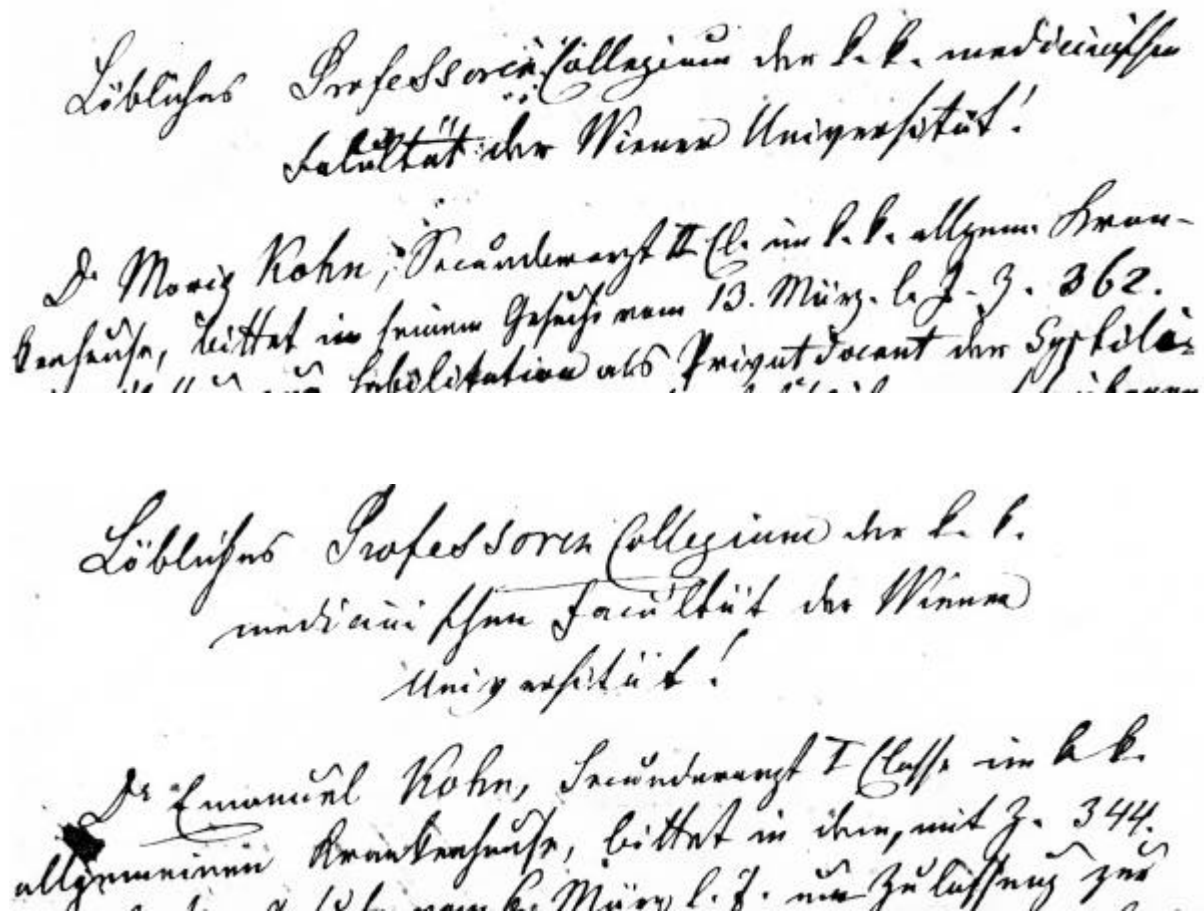 Löbliches Professoren Collegium der k. k. medicinischen
Fakultät der Wiener Universität!
Dr Moriz Kohn, Secundararzt II Cl. im k. k. allgem. Kran-
kenhause, bittet in seinem Gesuche vom 13. März l. J. Z. 362.
habilitation als Privatdocent der Syphilis-
Löbliches Professoren Collegium der k. k.
medicinischen Facultät der Wiener
Universität!
Dr Emanuel Kohn, Secundararzt I Classe im k. k.
allgemeinen Krankenhause, bittet in dem, mit Z. 344.
vom 6. März l. J. um Zulassung zur